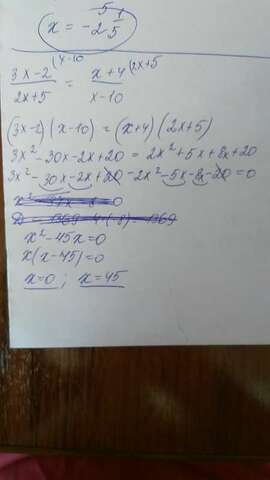 x = -2 5 1/5
(x-10 (2x+5
(3x-2)/(2x+5) = (x+4)/(x-10)
(3x-2)(x-10) = (x+4)(2x+5)
3x²-30x-2x+20 = 2x²+5x+8x+20
3x²-30x-2x+20-2x²-5x-8x-20=0
x²-45x=0
x(x-45)=0
x=0; x=45